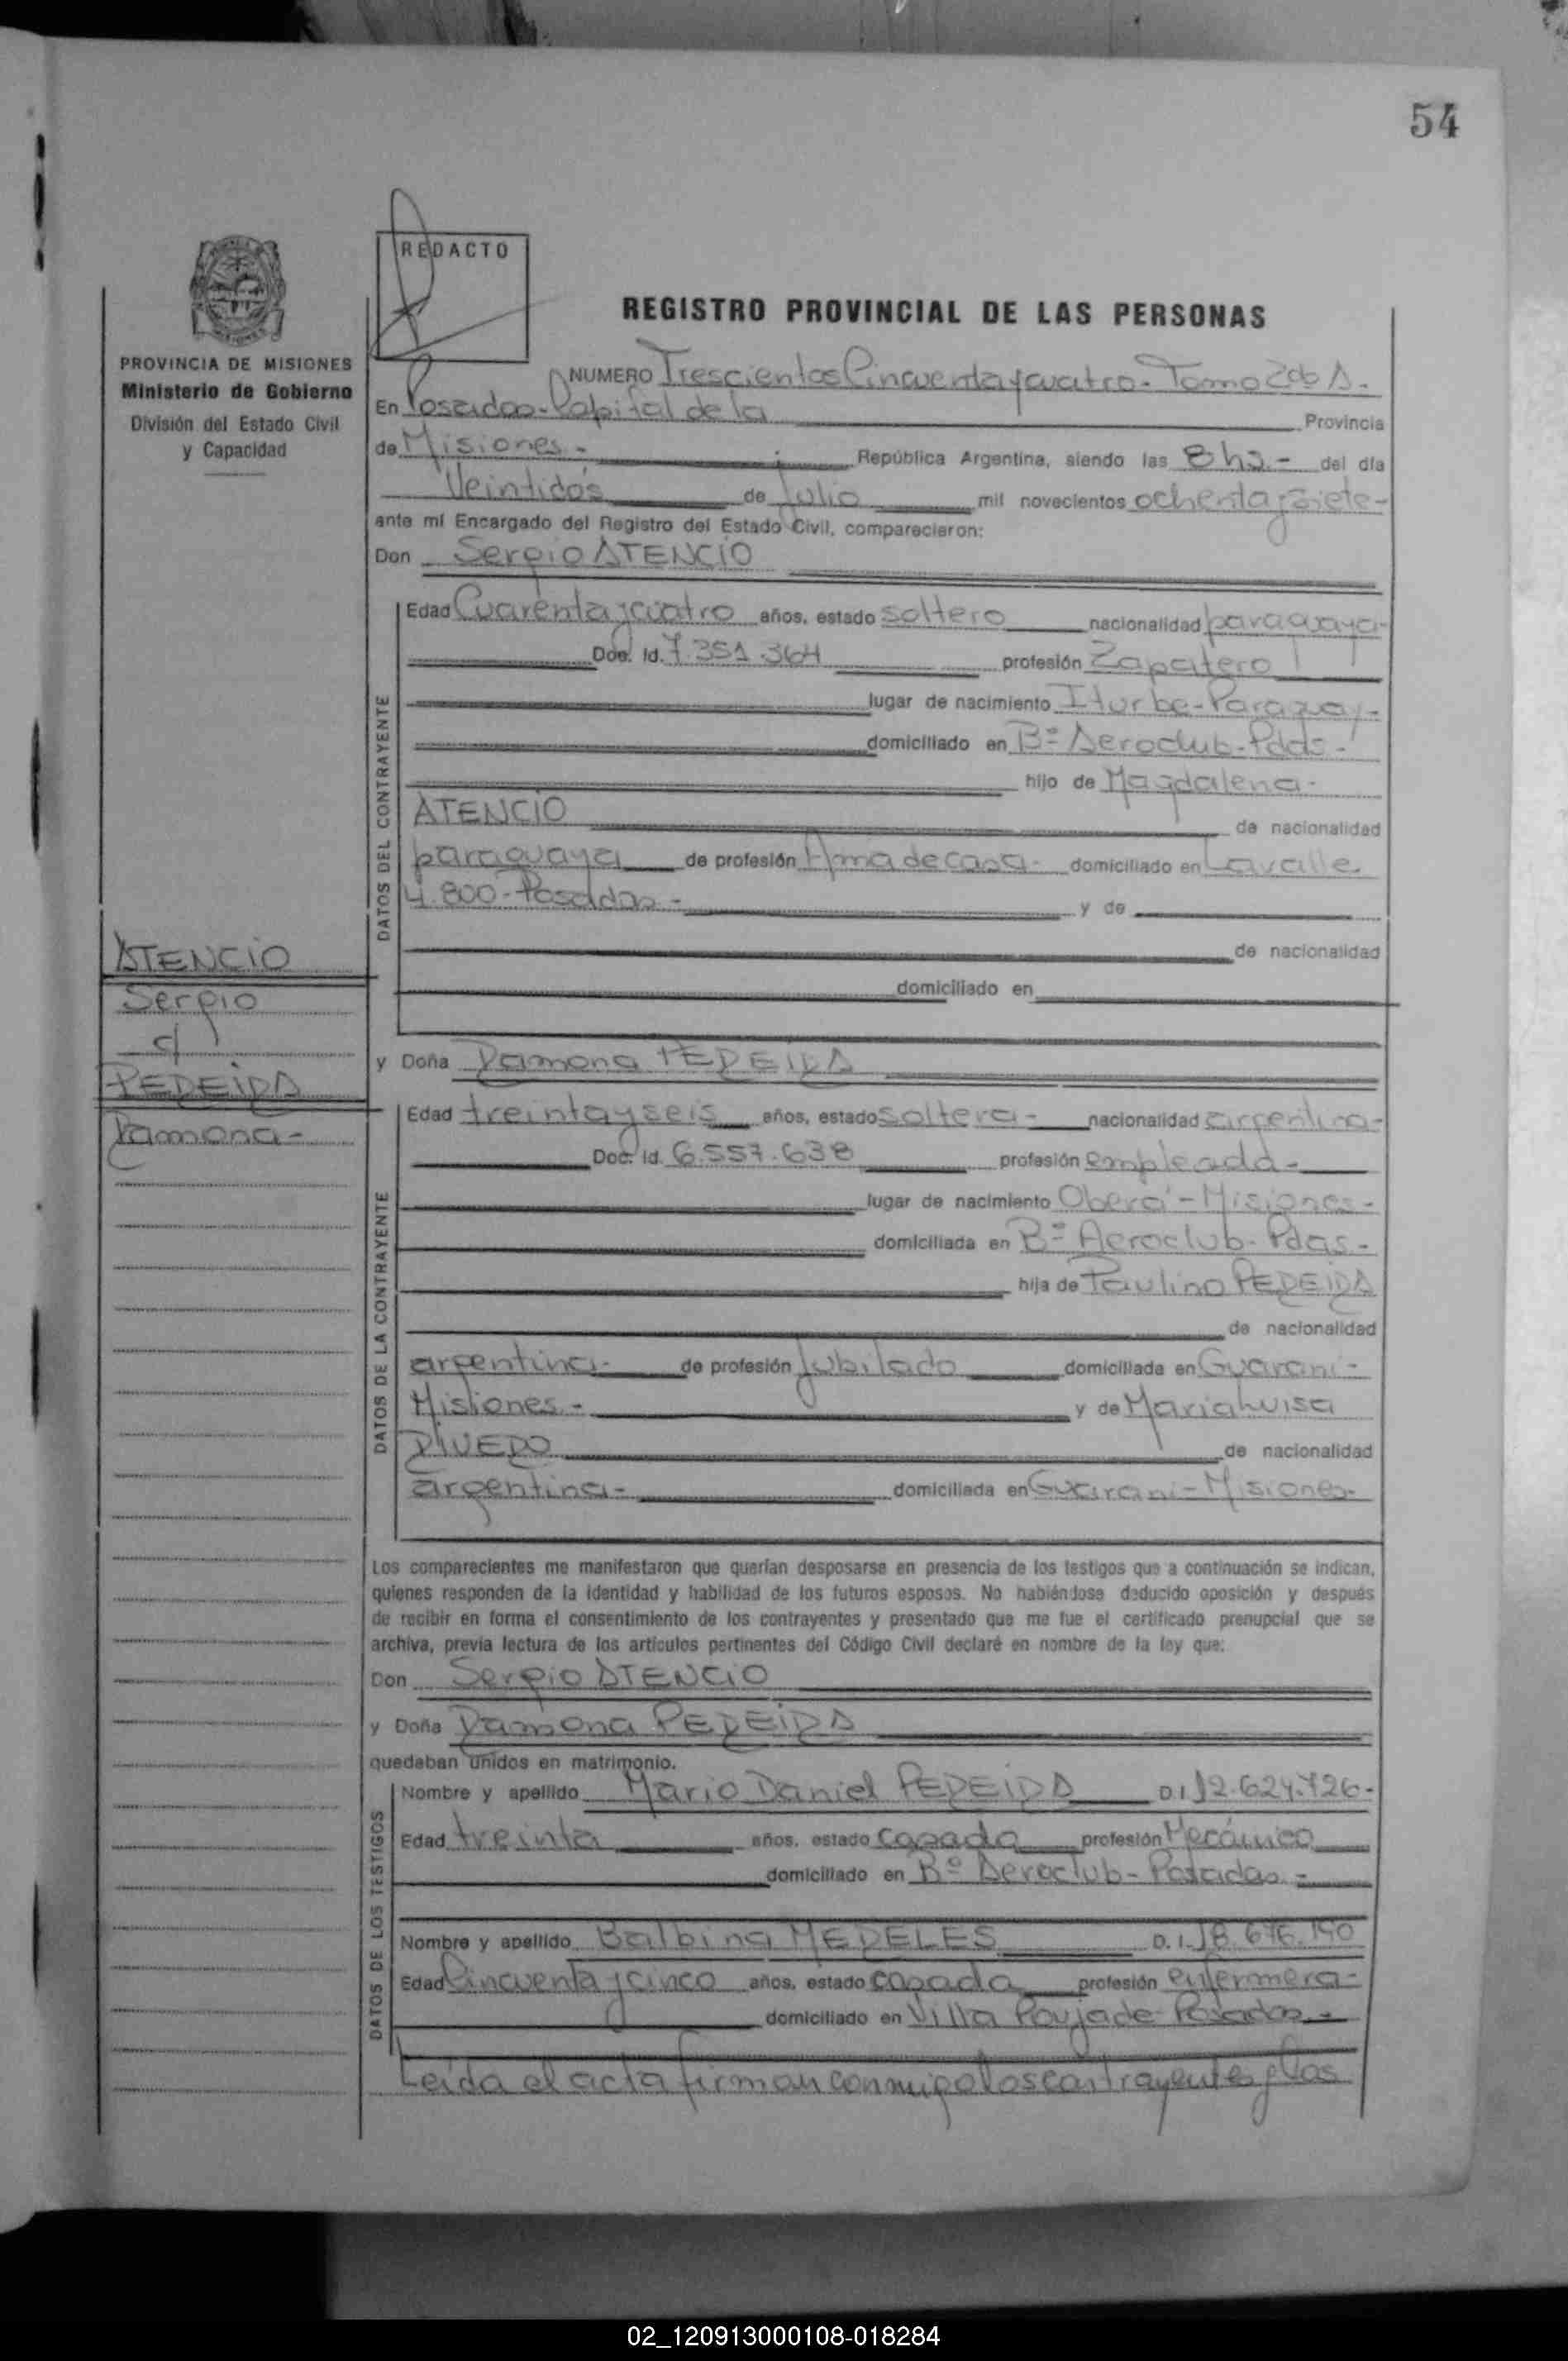 54
REDACTO
REGISTRO PROVINCIAL DE LAS PERSONAS
PROVINCIA DE MISIONES
Ministerio de Gobierno
División del Estado Civil
y Capacidad
NUMERO Trescientos Cincuenta y cuatro - Tomo 2do A.-
En Posadas - Capital de la Provincia
de Misiones - República Argentina, siendo las 8 hs.- del día
Veintidós de Julio mil novecientos ochenta y siete-
ante mí Encargado del Registro del Estado Civil, comparecieron:
Don Sergio ATENCIO
DATOS DEL CONTRAYENTE
Edad Cuarenta y cuatro años, estado soltero nacionalidad paraguaya-
Doc. Id. 7.351.364 profesión Zapatero
lugar de nacimiento Iturbe-Paraguay-
domiciliado en Bº Aeroclub-Pdas-
hijo de Magdalena-
ATENCIO de nacionalidad
paraguaya de profesión Ama de casa- domiciliado en Lavalle
4.800-Posadas- y de
de nacionalidad
domiciliado en
ATENCIO
Sergio
c/
PEREIRA
Ramona-
y Doña Ramona PEREIRA
DATOS DE LA CONTRAYENTE
Edad treinta y seis años, estado soltera- nacionalidad argentina-
Doc. Id. 6.557.638 profesión empleada-
lugar de nacimiento Oberá-Misiones-
domiciliada en Bº Aeroclub-Pdas-
hija de Paulino PEREIRA
de nacionalidad
argentina- de profesión Jubilado domiciliada en Guaraní-
Misiones- y de Maria Luisa
RIVERO de nacionalidad
argentina- domiciliada en Guaraní-Misiones-
Los comparecientes me manifestaron que querían desposarse en presencia de los testigos que a continuación se indican,
quienes responden de la identidad y habilidad de los futuros esposos. No habiéndose deducido oposición y después
de recibir en forma el consentimiento de los contrayentes y presentado que me fue el certificado prenupcial que se
archiva, previa lectura de los artículos pertinentes del Código Civil declaré en nombre de la ley que:
Don Sergio ATENCIO
y Doña Ramona PEREIRA
quedaban unidos en matrimonio.
DATOS DE LOS TESTIGOS
Nombre y apellido Mario Daniel PEREIRA D.I. 12.624.726-
Edad treinta años, estado casado profesión Mecánico
domiciliado en Bº Aeroclub-Posadas-
Nombre y apellido Balbina MERELES D.I. 18.676.190
Edad Cincuenta y cinco años, estado casada profesión enfermera-
domiciliado en Villa Poujade-Posadas-
Leída el acta firman conmigo los contrayentes y los
02_120913000108-018284